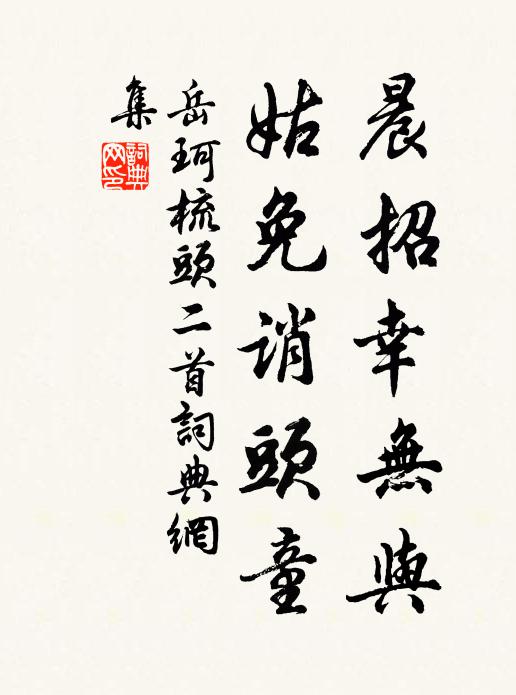 晨招幸無與
姑免誚頭童
岳珂梳頭二首詞典網
集
詞典
网印